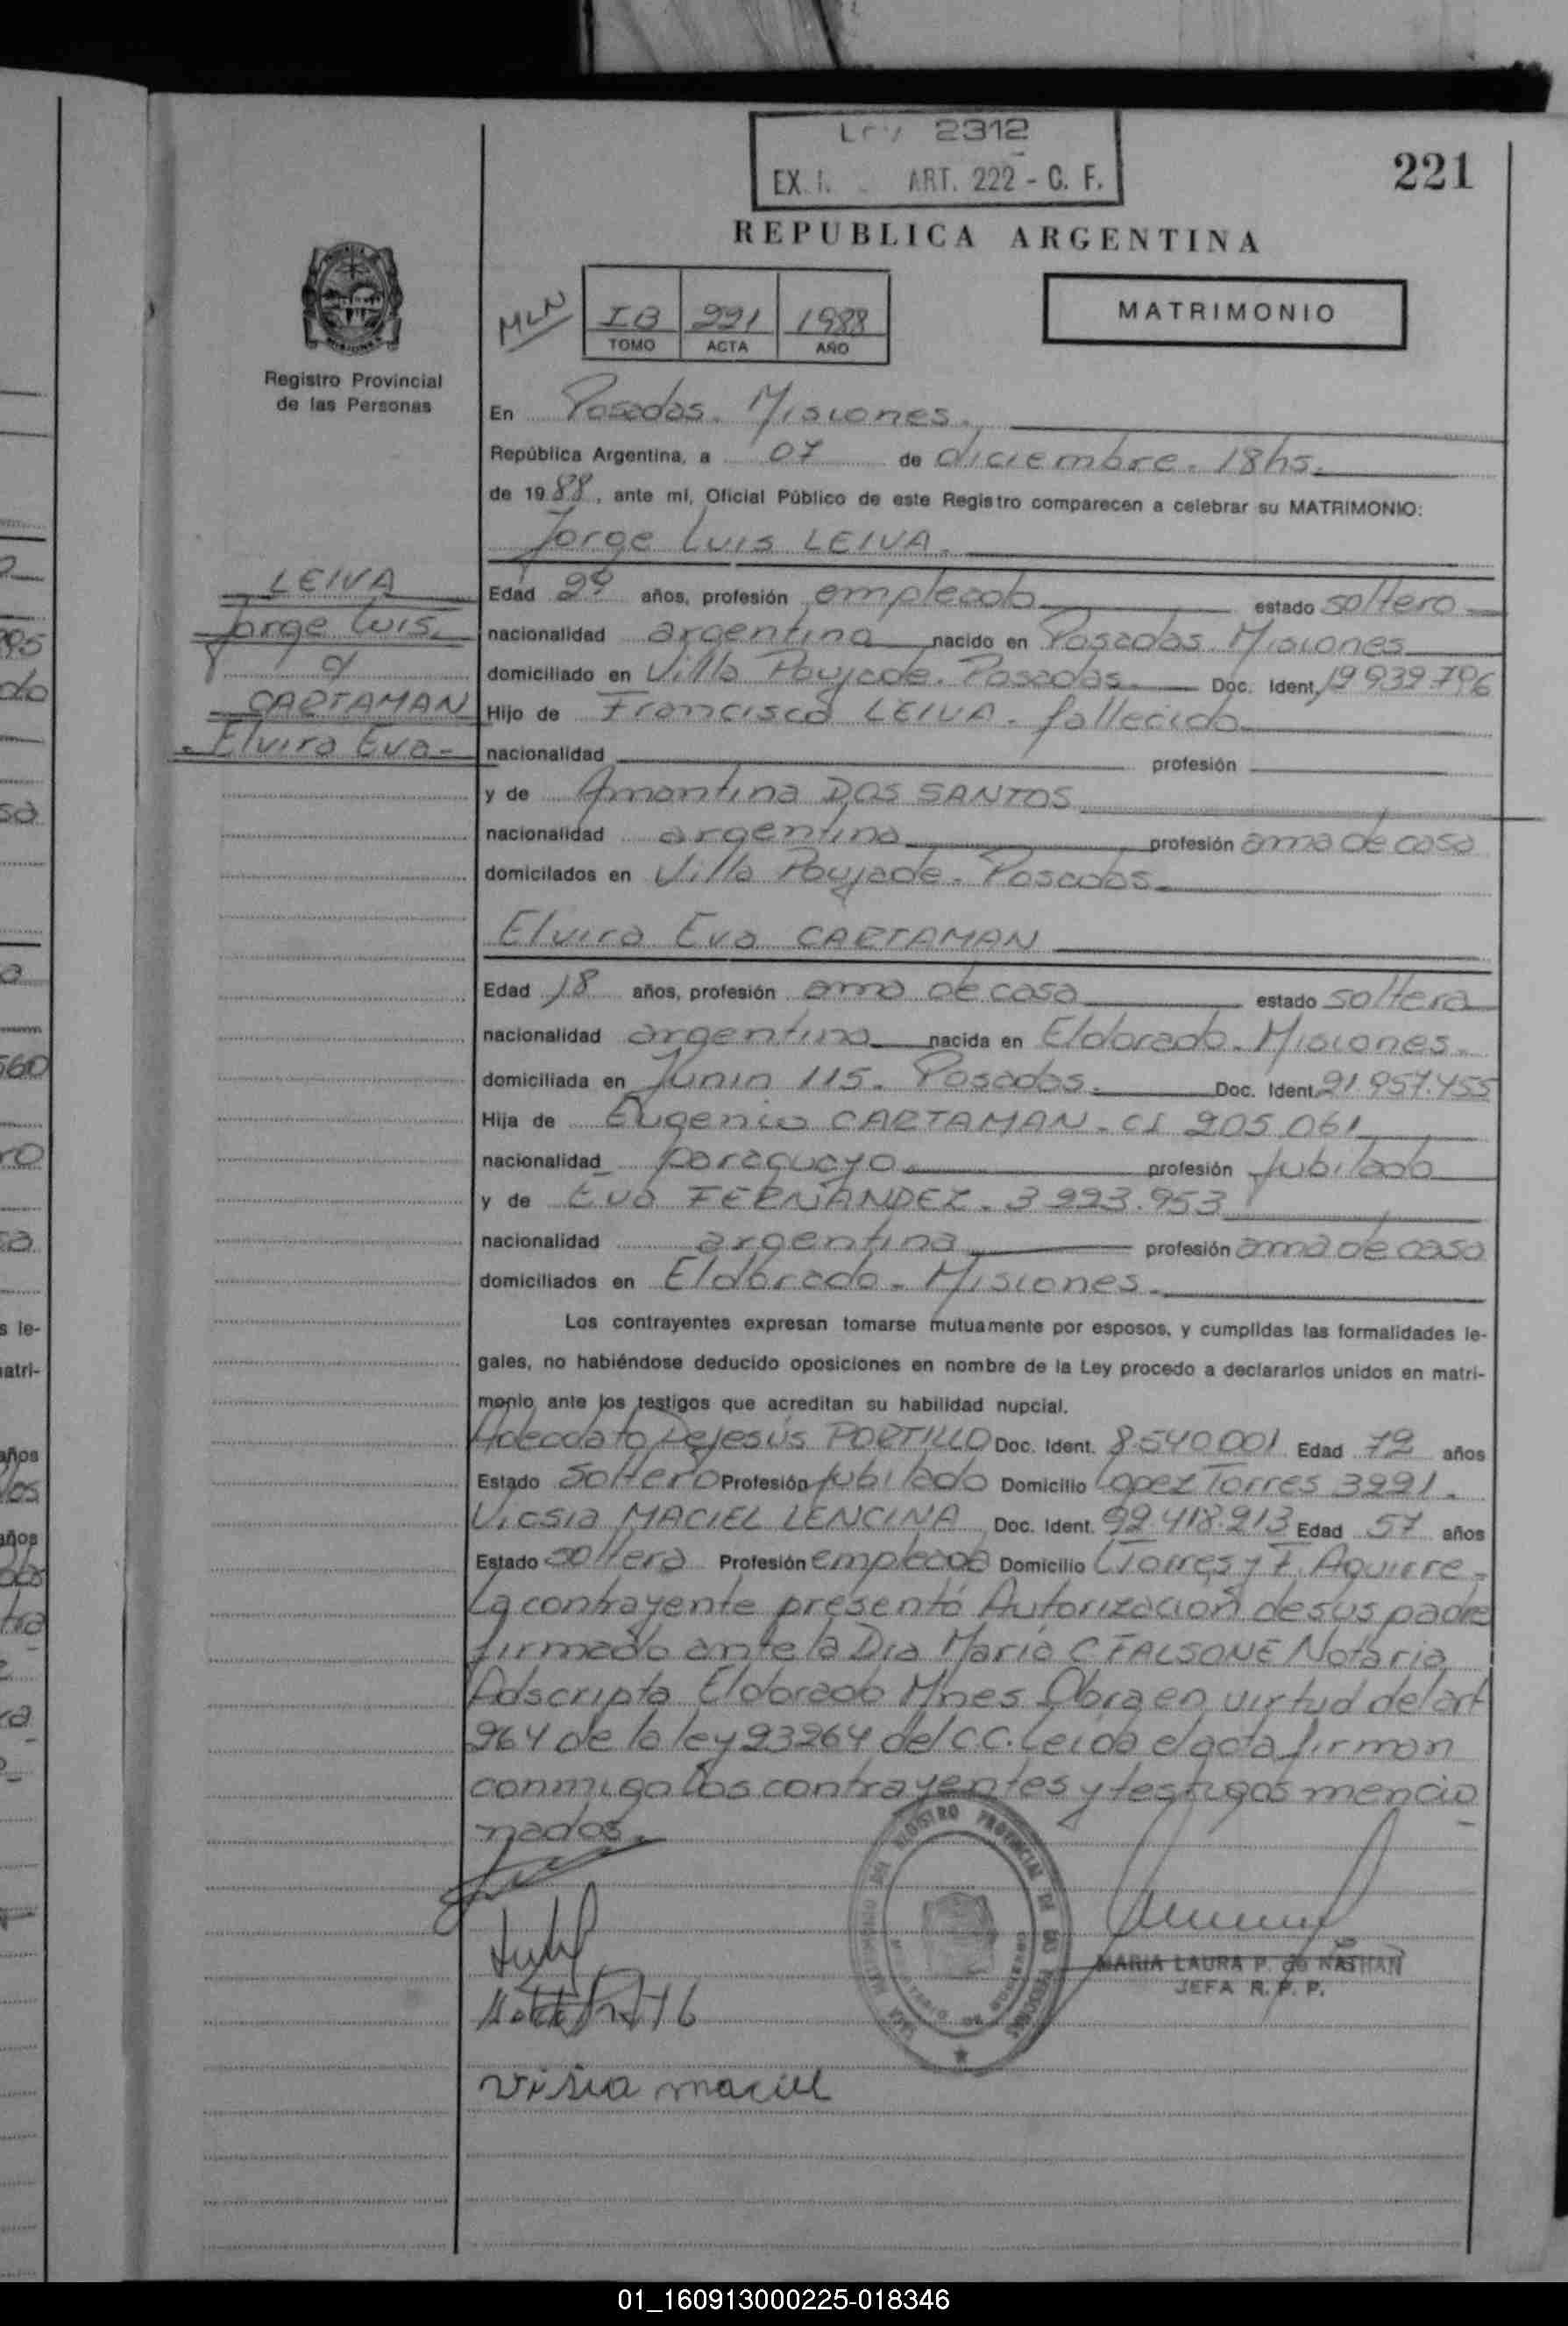 Ley 2312
ART. 222 - C. F.
221
REPUBLICA ARGENTINA
MLN
IB 221 1988
TOMO ACTA AÑO
MATRIMONIO
Registro Provincial
de las Personas
En Posadas. Misiones.
República Argentina, a 07 de diciembre. 18hs.
de 1988, ante mí, Oficial Público de este Registro comparecen a celebrar su MATRIMONIO:
Jorge Luis LEIVA.
LEIVA
Jorge Luis.
CARTAMAN
Elvira Eva-
Edad años, profesión empleado estado soltero
nacionalidad argentina nacido en Posadas Misiones
domiciliado en Villa Poujade. Posadas. Doc. Ident. 19 939.796
Hijo de Francisco LEIVA. fallecido
nacionalidad profesión
y de Amantina DOS SANTOS
nacionalidad argentina profesión ama de casa
domicilados en Villa Poujade. Posadas.
Elvira Eva CARTAMAN
Edad 18 años, profesión ama de casa estado soltera
nacionalidad argentina nacida en Eldorado. Misiones.
domiciliada en Junin 115. Posadas. Doc. Ident. 21.957.455
Hija de Eugenio CARTAMAN. CI 205.061
nacionalidad paraguayo profesión jubilado
y de Eva FERNANDEZ. 3 223.953
nacionalidad argentina profesión ama de casa
domiciliados en Eldorado. Misiones.
Los contrayentes expresan tomarse mutuamente por esposos, y cumplidas las formalidades le-
gales, no habiéndose deducido oposiciones en nombre de la Ley procedo a declararlos unidos en matri-
monio ante los testigos que acreditan su habilidad nupcial.
Adeodato Dejesús PORTILLO Doc. Ident. 8.540.001 Edad 72 años
Estado soltero Profesión jubilado Domicilio Lopez Torres 3221.
Vicsia MACIEL LENCINA Doc. Ident. 92.418.213 Edad 57 años
Estado soltera Profesión empleada Domicilio LTorres y F. Aguirre-
La contrayente presentó Autorización de sus padre
firmado ante la Dra María C FALSONE Notaria
Adscripta Eldorado Mnes Obra en virtud del art
264 de la ley 23264 del C.C. Leida el acta firman
conmigo los contrayentes y testigos mencio
nados.
REGISTRO PROVINCIAL DE LAS PERSONAS
MARIA LAURA P. de NATHAN
JEFA R. P. P.
visia maciel
01_160913000225-018346